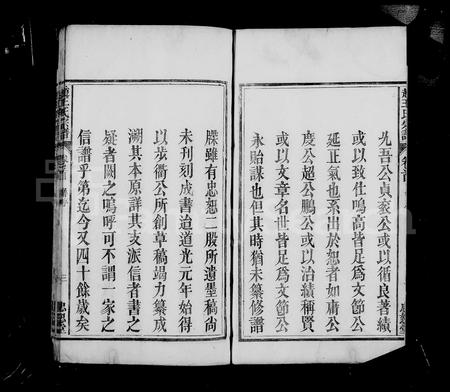 趙王氏宗譜
卷之首
先吾公貞袤公或以循良著績
或以致仕鳴高皆足爲文節公
延正氣也系出於恕者如庸公
慶公超公鵬公或以治績稱賢
或以文章名世皆足爲文節公
永貽謀也但其時猶未纂修譜
牒雖有忠恕二股所遺墨稿尙
未刋刻成書迨道光元年始得
以步衢公所創草稿竭力纂成
溯其本原詳其支派信者書之
疑者闕之嗚呼可不謂一家之
信譜乎第迄今又四十餘歲矣